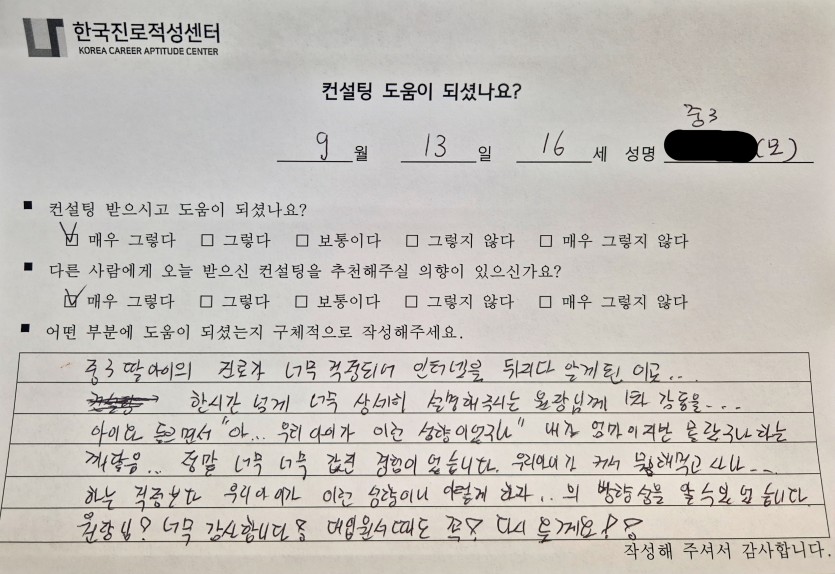 한국진로적성센터
KOREA CAREER APTITUDE CENTER
컨설팅 도움이 되셨나요?
중3
9 월 13 일 16 세 성명 (모)
■ 컨설팅 받으시고 도움이 되셨나요?
☑ 매우 그렇다 □ 그렇다 □ 보통이다 □ 그렇지 않다 □ 매우 그렇지 않다
■ 다른 사람에게 오늘 받으신 컨설팅을 추천해주실 의향이 있으신가요?
☑ 매우 그렇다 □ 그렇다 □ 보통이다 □ 그렇지 않다 □ 매우 그렇지 않다
■ 어떤 부분에 도움이 되셨는지 구체적으로 작성해주세요.
중3 딸아이의 진로가 너무 걱정되어 인터넷을 뒤지다 알게된 이곳...
한시간 넘게 너무 상세히 설명해주시는 원장님께 1차 감동을...
아이와 들으면서 "아... 우리 아이가 이런 성향이었구나" 내가 엄마이지만 몰랐구나 하는
깨달음... 정말 너무 너무 값진 경험이었습니다. 우리아이가 커서 뭘해먹고 사나...
하는 걱정보다 우리아이가 이런 성향이니 이렇게 하자.. 의 방향성을 알 수 있었습니다
원장님? 너무 감사합니다 대입원서때도 꼭? 다시 올게요!?
작성해 주셔서 감사합니다.